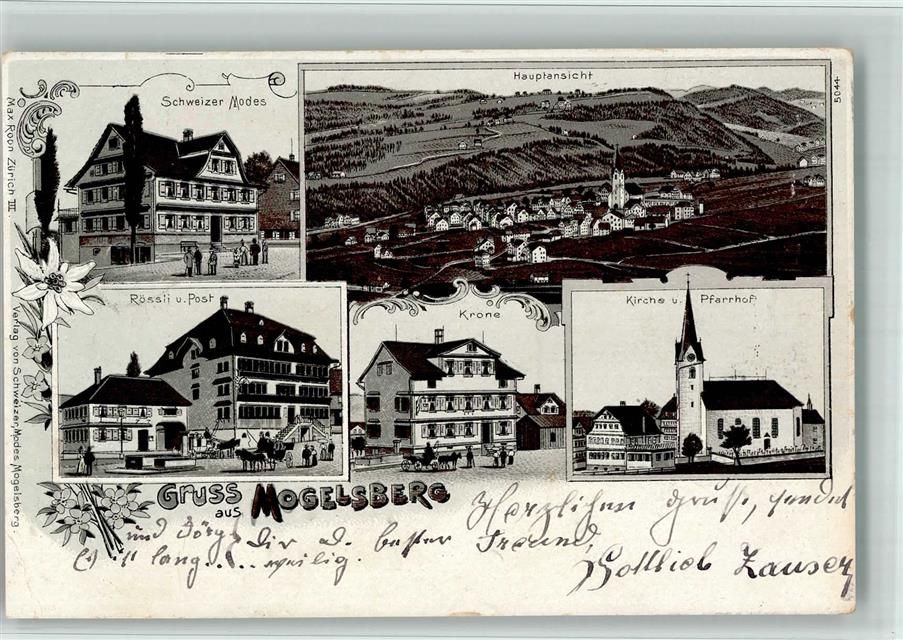 Schweizer Modes
Hauptansicht
5044
Max Roon Zürich III
Rössli u. Post
Krone
Kirche u. Pfarrhof
Verlag von Schweizer, Modes Mogelsberg.
Gruss aus Mogelsberg
Herzlichen Gruss, sendet
Dir d. bester Freund,
Gottlieb Zauser
und
lang... weilig.